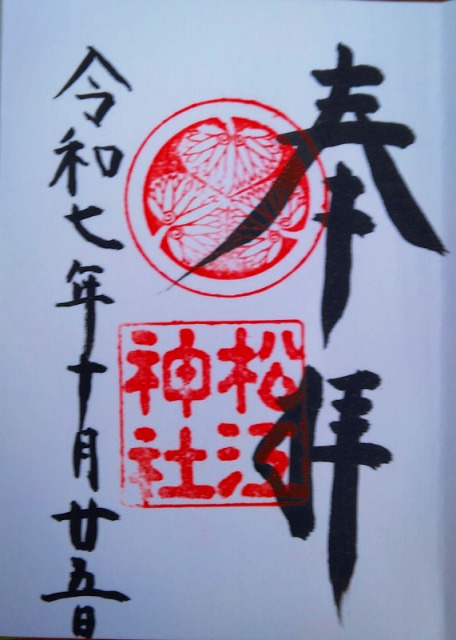 奉拝
松江
神社
令和七年十月廿五日